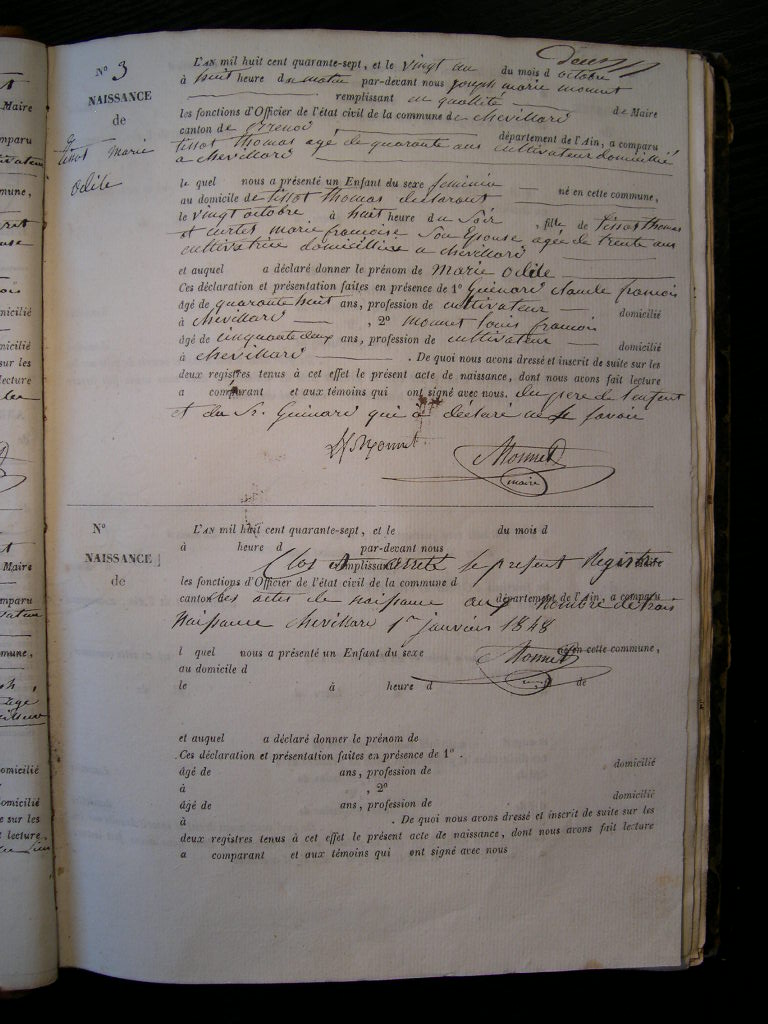 Deux
N° 3
NAISSANCE
de
Tissot Marie
Odile
L'AN mil huit cent quarante-sept, et le vingt un du mois d octobre
à huit heure du matin par-devant nous joseph marie monnet
remplissant en qualité de Maire
les fonctions d'Officier de l'état civil de la commune de chevillard
canton de Brenod département de l'Ain, a comparu
tissot thomas agé de quarante ans cultivateur domicilié
a chevillard
le quel nous a présenté un Enfant du sexe feminin né en cette commune,
au domicile de tissot thomas declarant
le vingt octobre à huit heure du soir, fille de tissot thomas
et curtet marie francoise son Epouse agée de trente ans
cultivatrice domicilliée a chevillard
et auquel a déclaré donner le prénom de marie odile
Ces déclaration et présentation faites en présence de 1° Guinard claude francois
âgé de quarante huit ans, profession de cultivateur domicilié
à chevillard, 2° monnet louis francois
âgé de cinquante deux ans, profession de cultivateur domicilié
à chevillard. De quoi nous avons dressé et inscrit de suite sur les
deux registres tenus à cet effet le présent acte de naissance, dont nous avons fait lecture
a comparant et aux témoins qui ont signé avec nous. du pere de l'enfant
et du Sr. Guinard qui a déclaré ne savoir
Monnet Monnet
maire
N°
NAISSANCE
de
L'AN mil huit cent quarante-sept, et le du mois d
à heure d par-devant nous
remplissant de Maire
Clos et arrete le present Registre
les fonctions d'Officier de l'état civil de la commune d
canton d département de l'Ain, a comparu
des actes de naissance au nombre de trois
Naissance chevillard 1er janvier 1848
l quel nous a présenté un Enfant du sexe né en cette commune,
Monnet
au domicile d
le à heure d de
et auquel a déclaré donner le prénom de
Ces déclaration et présentation faites en présence de 1°.
âgé de ans, profession de domicilié
à , 2°
âgé de ans, profession de domicilié
à . De quoi nous avons dressé et inscrit de suite sur les
deux registres tenus à cet effet le présent acte de naissance, dont nous avons fait lecture
a comparant et aux témoins qui ont signé avec nous